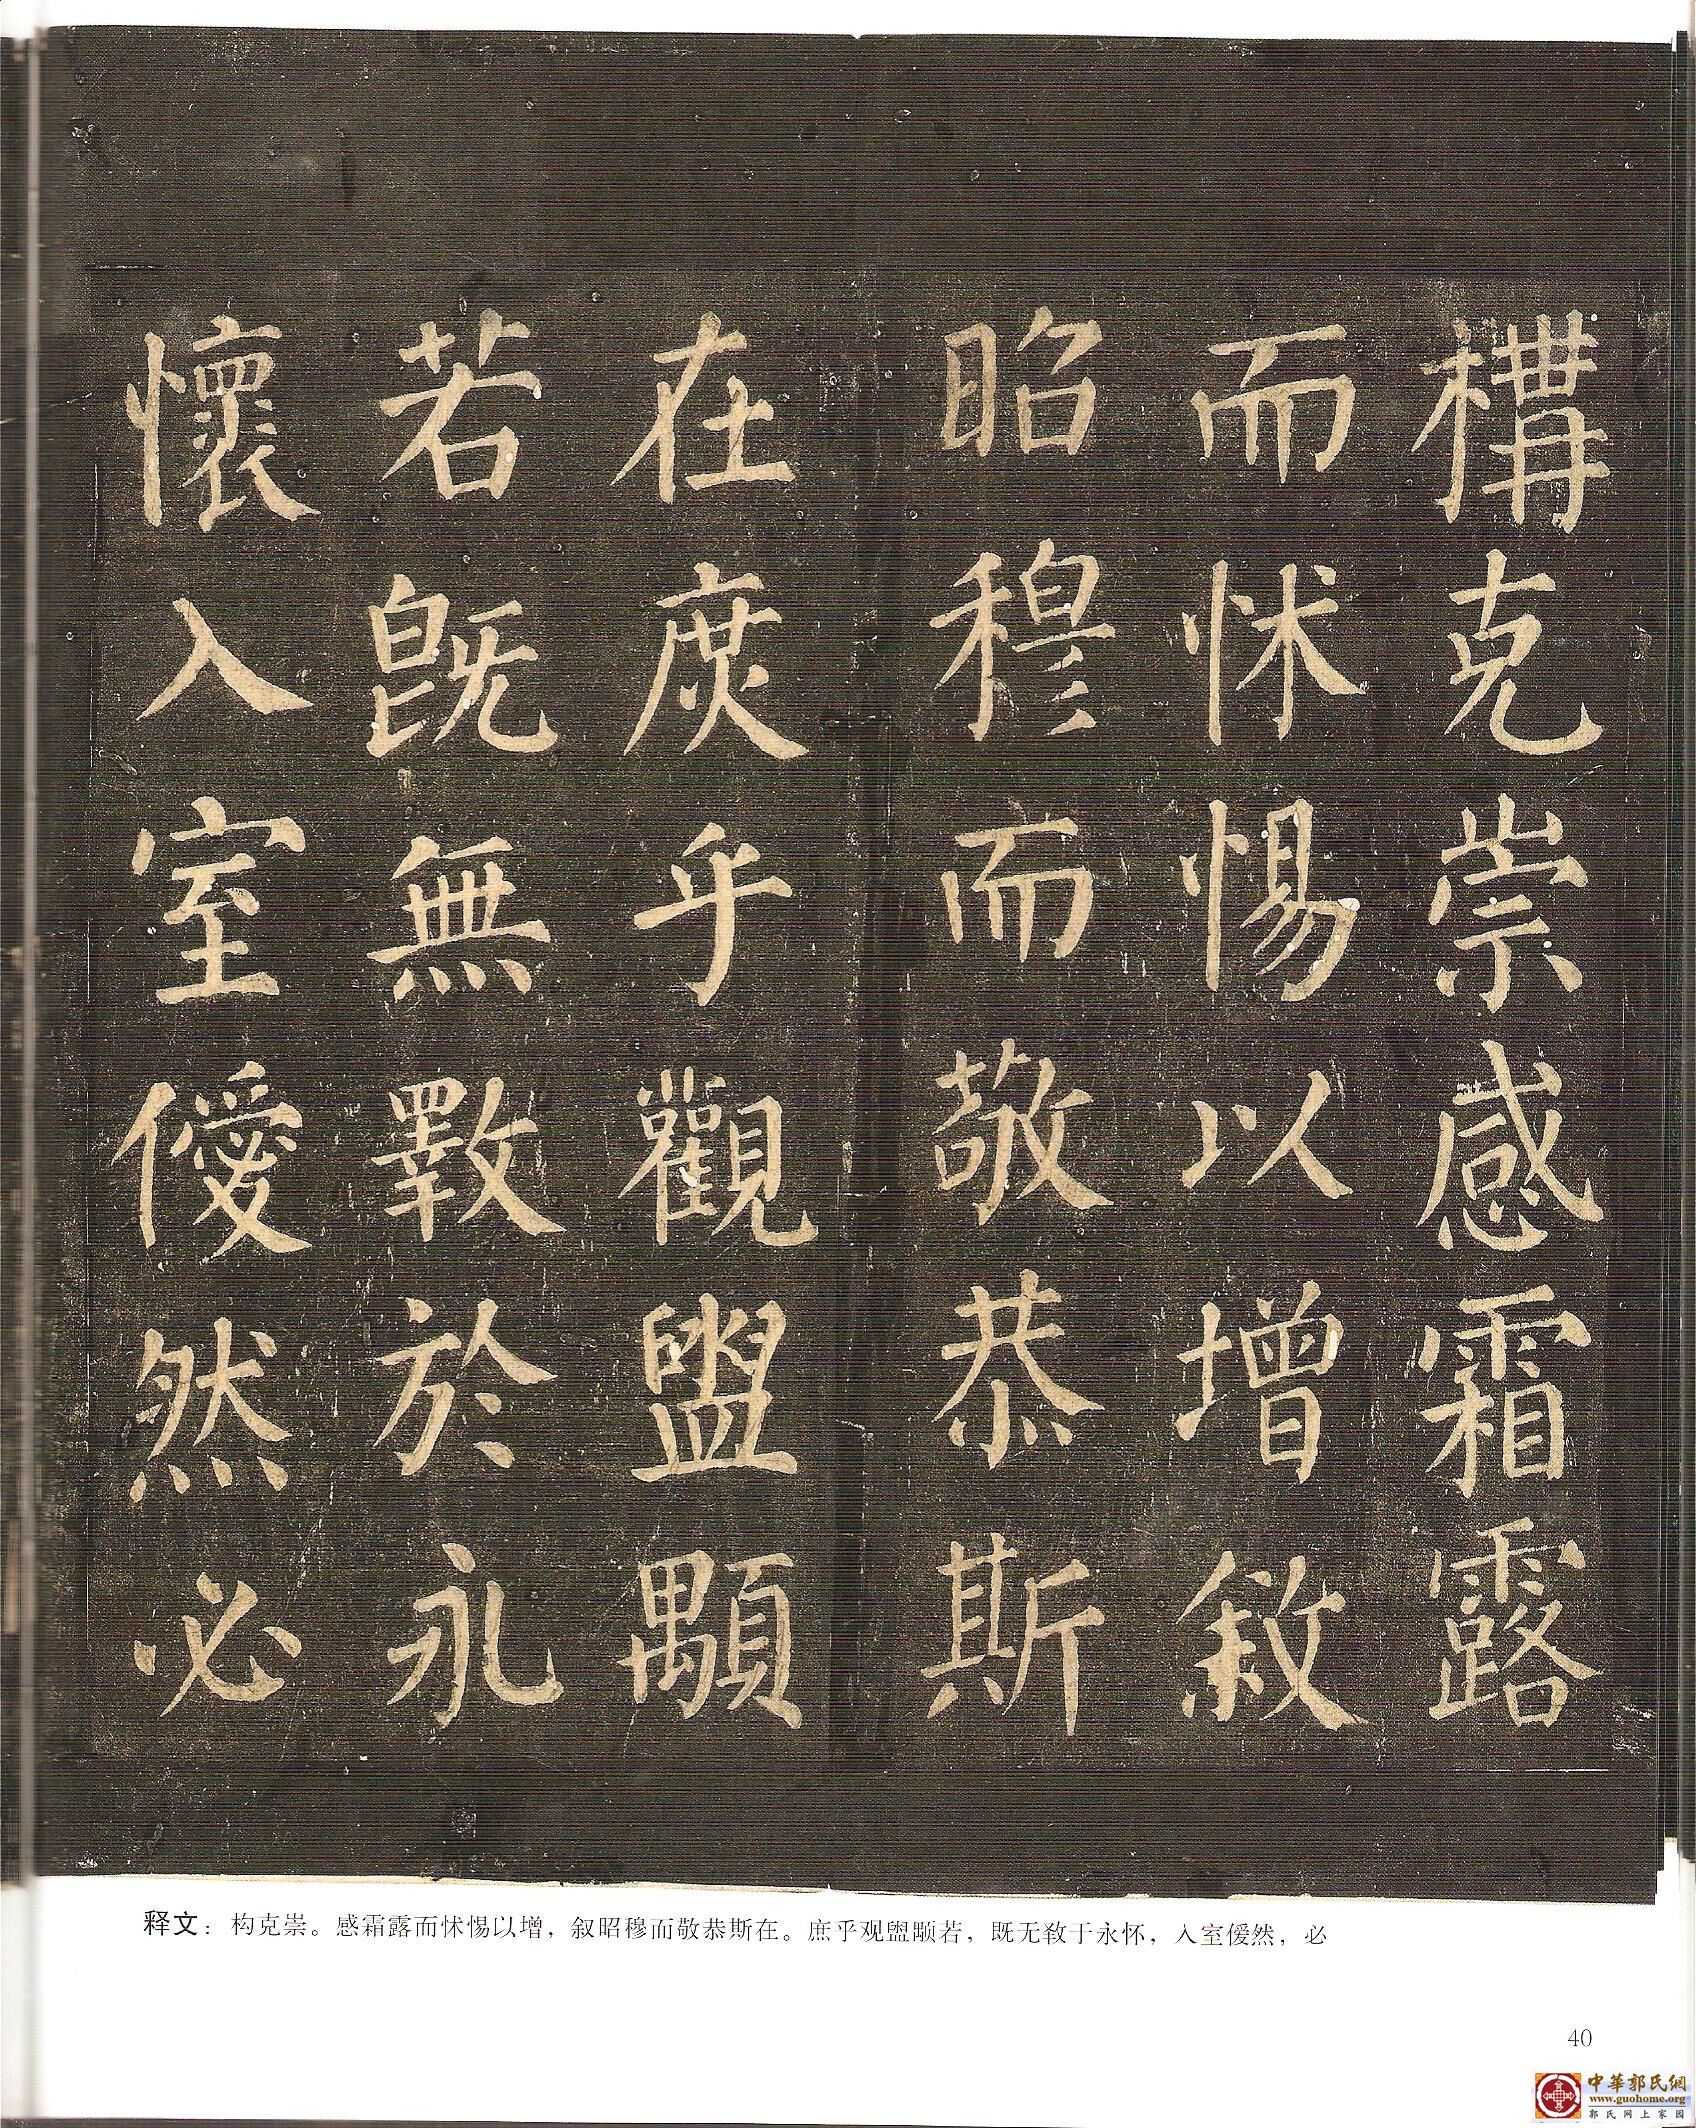 構克崇感霜露
而怵惕以增敘
昭穆而敬恭斯
在庶乎觀盥顒
若既無斁於永
懷入室僾然必
释文：构克崇。感霜露而怵惕以增，叙昭穆而敬恭斯在。庶乎观盥颙若，既无斁于永怀，入室僾然，必
40
中華郭氏網
www.guohome.org
郭氏网上家园